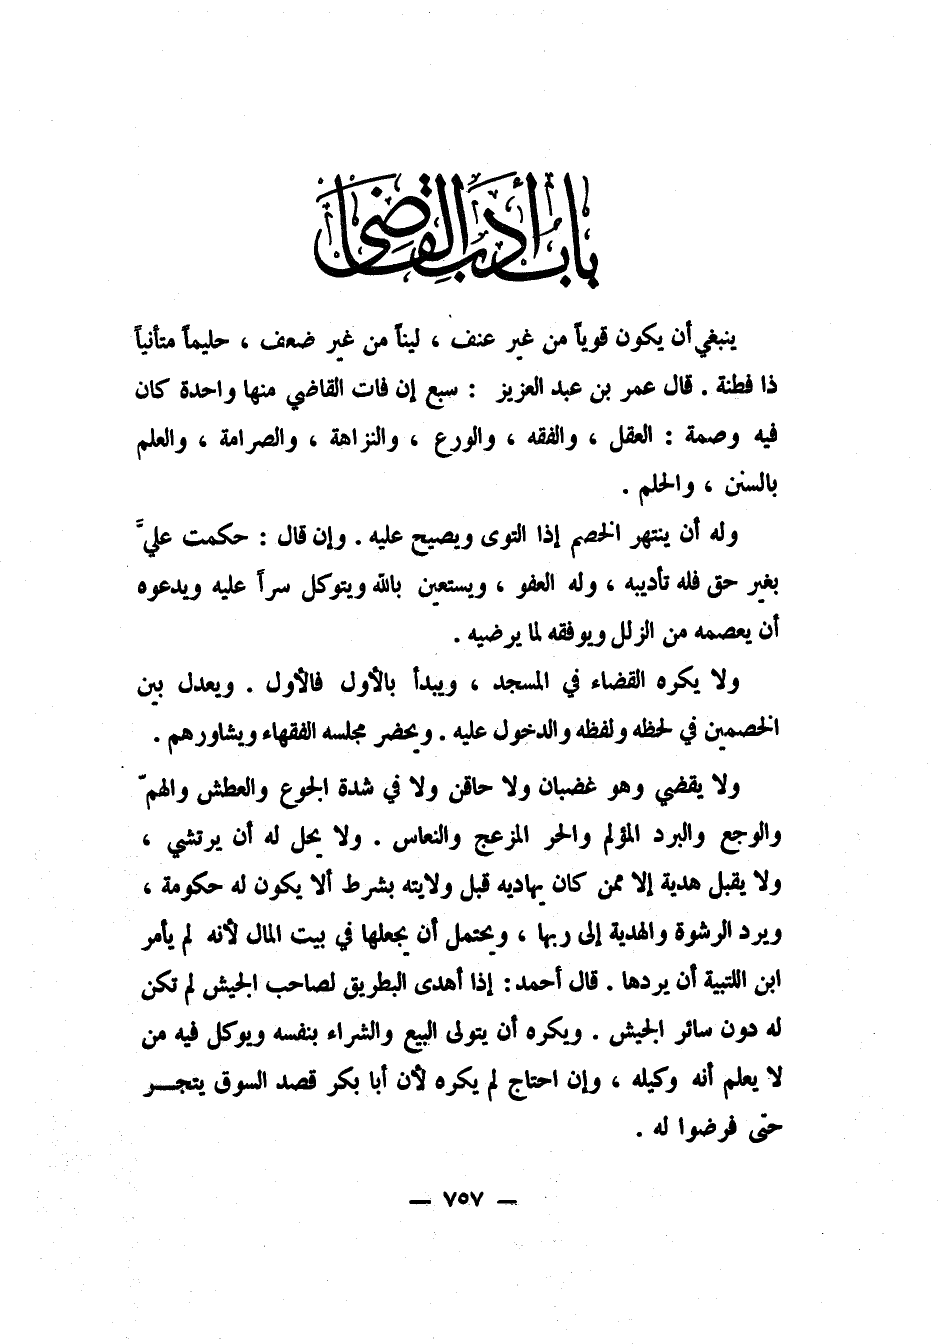 باب أدب القاضي
ينبغي أن يكون قوياً من غير عنف ، ليناً من غير ضعف ، حليماً متأنياً
ذا فطنة . قال عمر بن عبد العزيز : سبع إن فات القاضي منها واحدة كان
فيه وصمة : العقل ، والفقه ، والورع ، والنزاهة ، والصرامة ، والعلم
بالسنن ، والحلم .
وله أن ينتهر الخصم إذا التوى ويصيح عليه . وإن قال : حكمت عليَّ
بغير حق فله تأديبه ، وله العفو ، ويستعين بالله ويتوكل سراً عليه ويدعوه
أن يعصمه من الزلل ويوفقه لما يرضيه .
ولا يكره القضاء في المسجد ، ويبدأ بالأول فالأول . ويعدل بين
الخصمين في لحظه ولفظه والدخول عليه . ويحضر مجلسه الفقهاء ويشاورهم .
ولا يقضي وهو غضبان ولا حاقن ولا في شدة الجوع والعطش والهمّ
والوجع والبرد المؤلم والحر المزعج والنعاس . ولا يحل له أن يرتشي ،
ولا يقبل هدية إلا ممن كان يهاديه قبل ولايته بشرط ألا يكون له حكومة ،
ويرد الرشوة والهدية إلى ربها ، ويحتمل أن يجعلها في بيت المال لأنه لم يأمر
ابن اللتبية أن يردها . قال أحمد : إذا أهدى البطريق لصاحب الجيش لم تكن
له دون سائر الجيش . ويكره أن يتولى البيع والشراء بنفسه ويوكل فيه من
لا يعلم أنه وكيله ، وإن احتاج لم يكره لأن أبا بكر قصد السوق يتجـــر
حتى فرضوا له .
— ٧٥٧ —